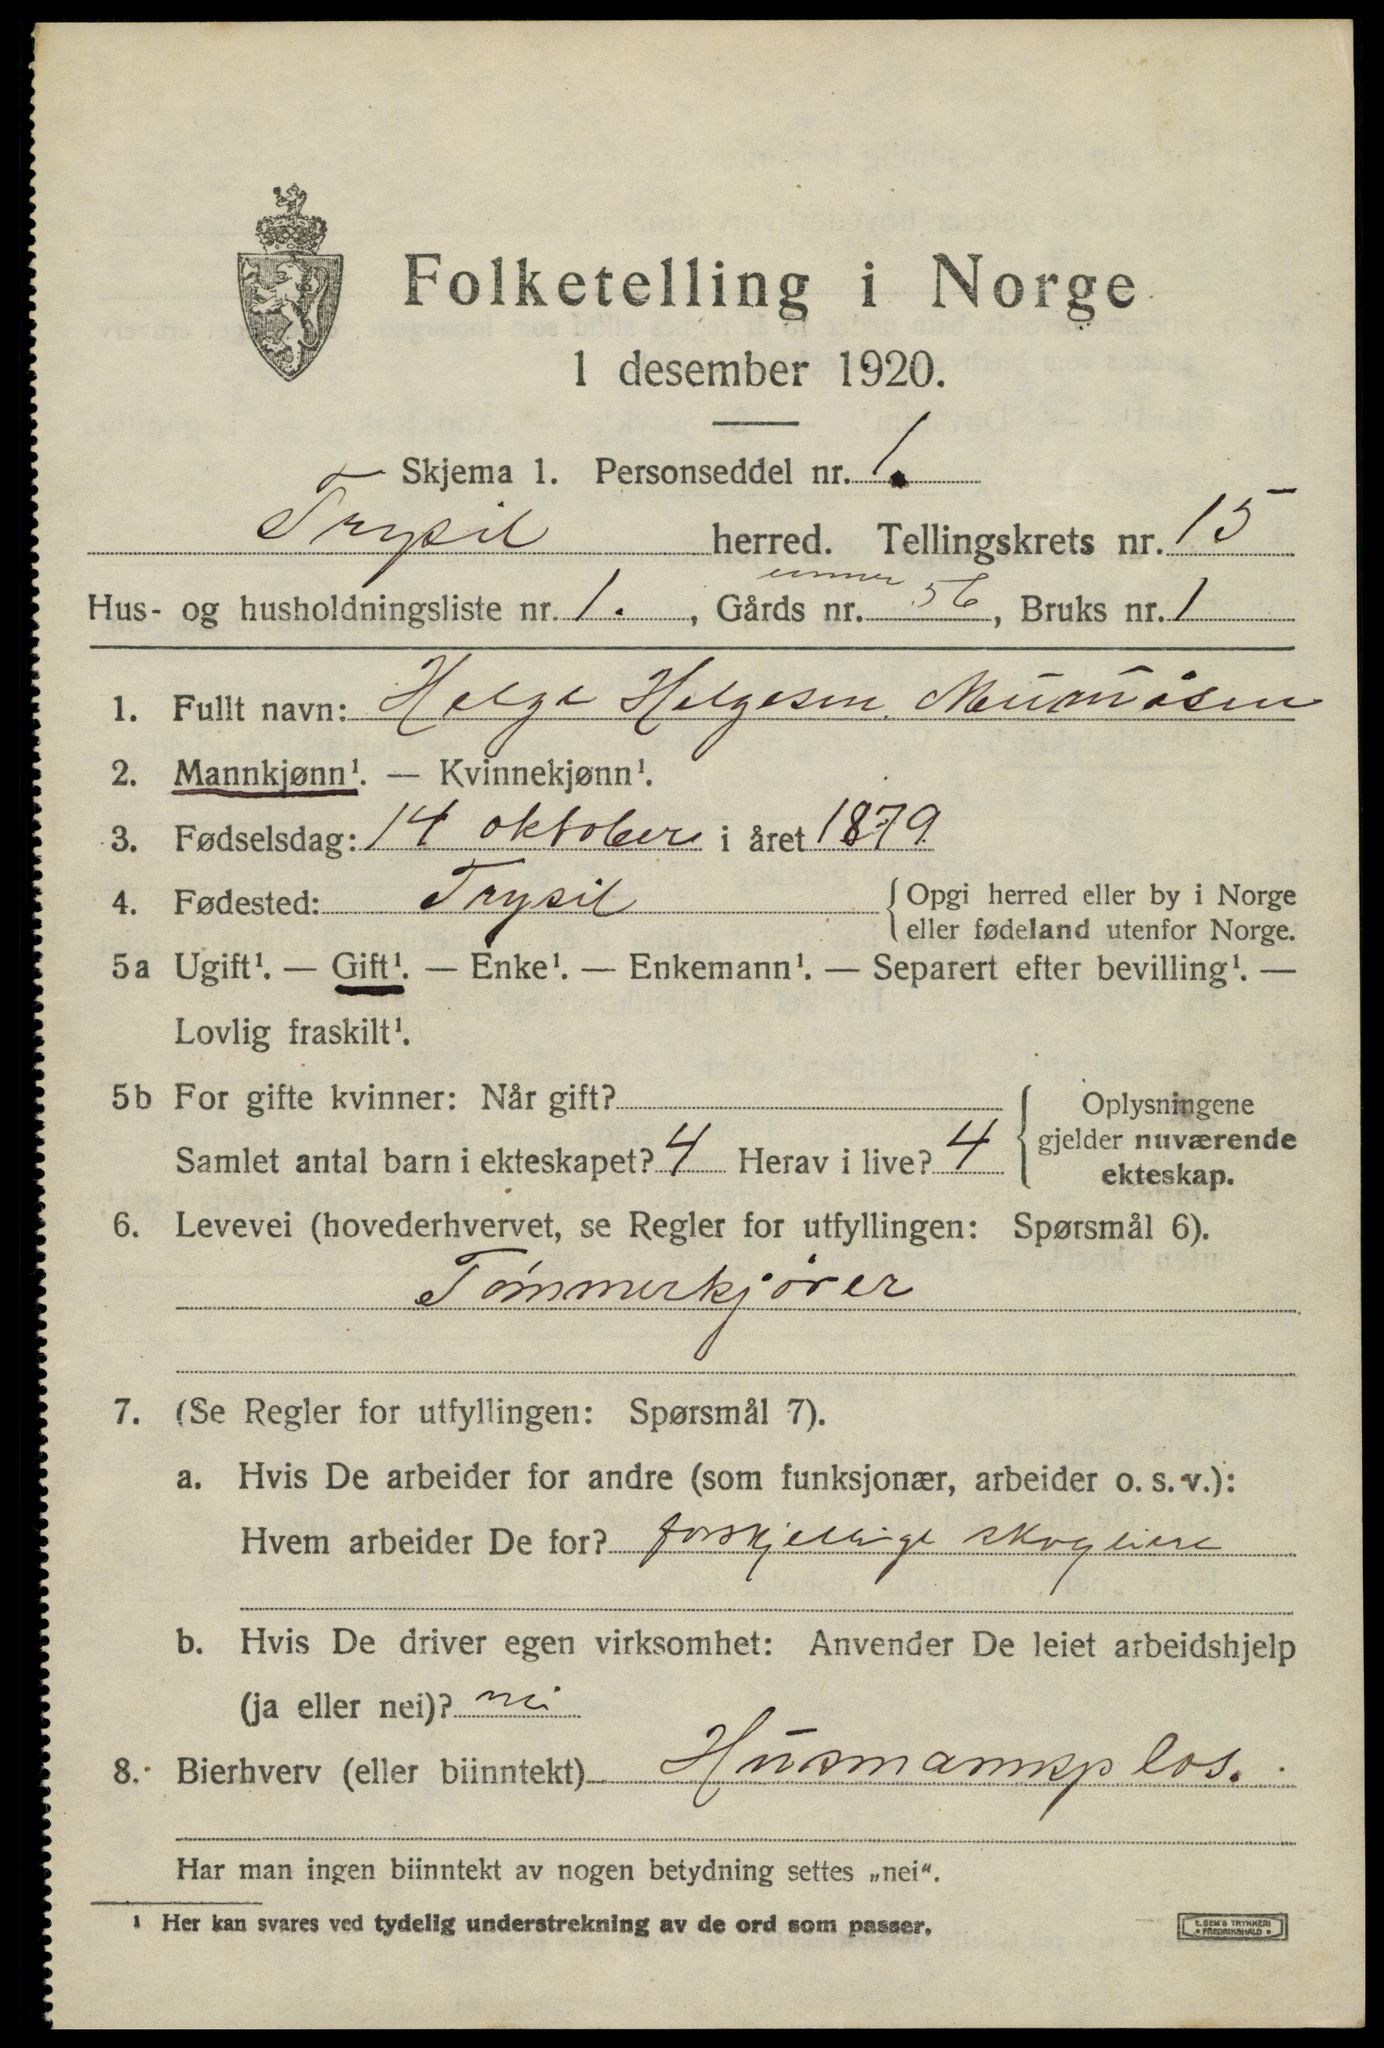 Folketelling i Norge
1 desember 1920.
Skjema 1. Personseddel nr. 1.
Trysil herred. Tellingskrets nr. 15
under
Hus- og husholdningsliste nr. 1., Gårds nr. 56, Bruks nr. 1
1. Fullt navn: Helge Helgesen
2. Mannkjønn¹. — Kvinnekjønn¹.
3. Fødselsdag: 14 oktober i året 1879
4. Fødested: Trysil {Opgi herred eller by i Norge
eller fødeland utenfor Norge.
5a Ugift¹. — Gift¹. — Enke¹. — Enkemann¹. — Separert efter bevilling¹. —
Lovlig fraskilt¹.
5b For gifte kvinner: Når gift? { Oplysningene
Samlet antal barn i ekteskapet? 4 Herav i live? 4 gjelder nuværende
ekteskap.
6. Levevei (hovederhvervet, se Regler for utfyllingen: Spørsmål 6).
Tømmerkjører
7. (Se Regler for utfyllingen: Spørsmål 7).
a. Hvis De arbeider for andre (som funksjonær, arbeider o. s. v.):
Hvem arbeider De for? forskjellige skogeiere
b. Hvis De driver egen virksomhet: Anvender De leiet arbeidshjelp
(ja eller nei)? nei
8. Bierhverv (eller biinntekt) Husmannsplos.
Har man ingen biinntekt av nogen betydning settes „nei“.
¹ Her kan svares ved tydelig understrekning av de ord som passer.
E. SEM'S TRYKKERI
FREDRIKSHALD